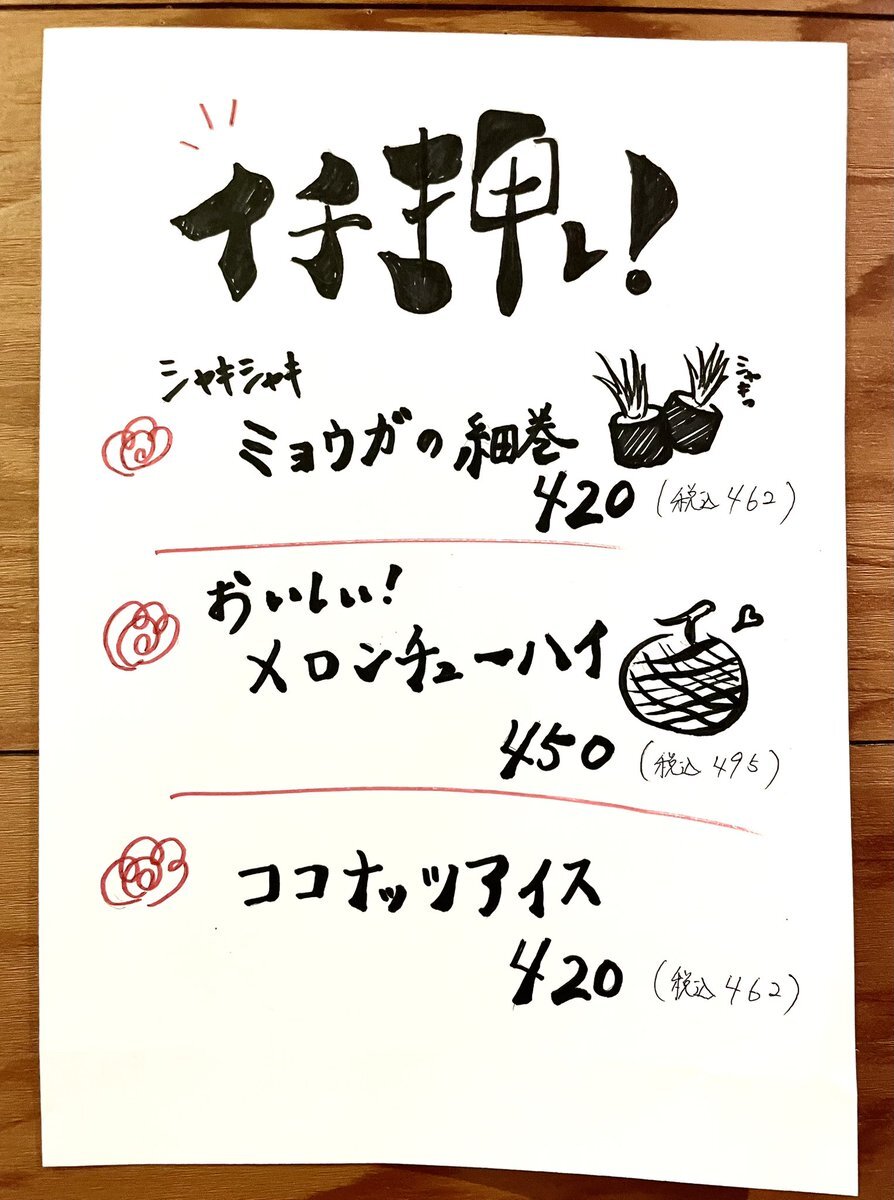 イチ押し!
シャキシャキ
シャキっ
ミョウガの細巻
420 (税込462)
おいしい!
メロンチューハイ
450 (税込495)
ココナッツアイス
420 (税込462)